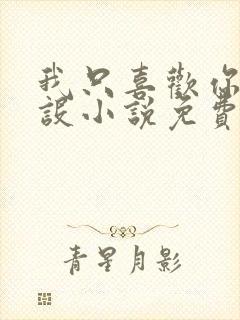 我只喜歡你
設小說免費
青星月影